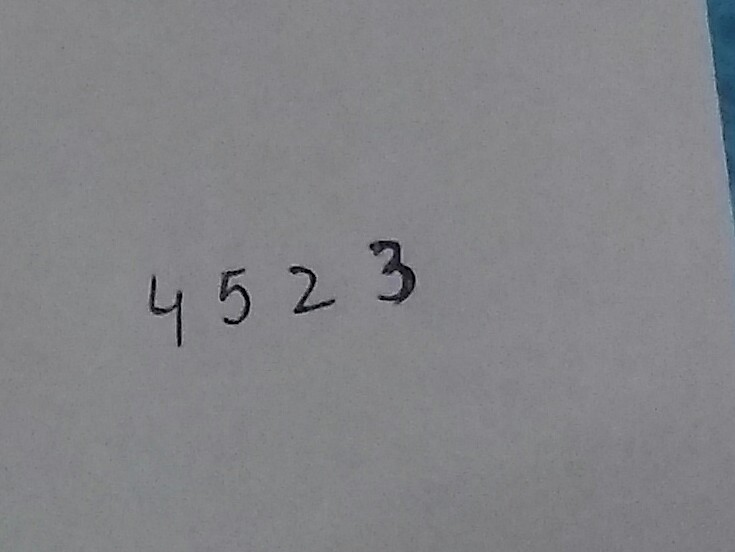 4 5 2 3